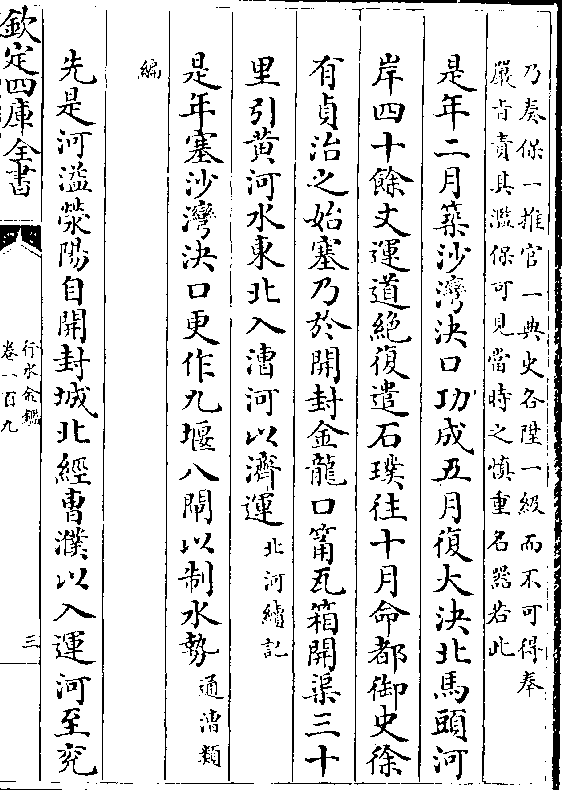 乃奏保一推官一典史各陞一級而不可得奉
嚴旨責其濫保可見當時之慎重名器若此
是年二月築沙灣決口功成五月復大決北馬頭河
岸四十餘丈運道絶復遣石璞往十月命都御史徐
有貞治之始塞乃於開封金龍口筩瓦箱開渠三十
里引黄河水東北入漕河以濟運北河續記
是年塞沙灣決口更作九堰八閘以制水勢通漕類
編
先是河溢滎陽自開封城北經曹濮以入運河至兖
欽定四庫全書
行水金鑑
卷一百九
三